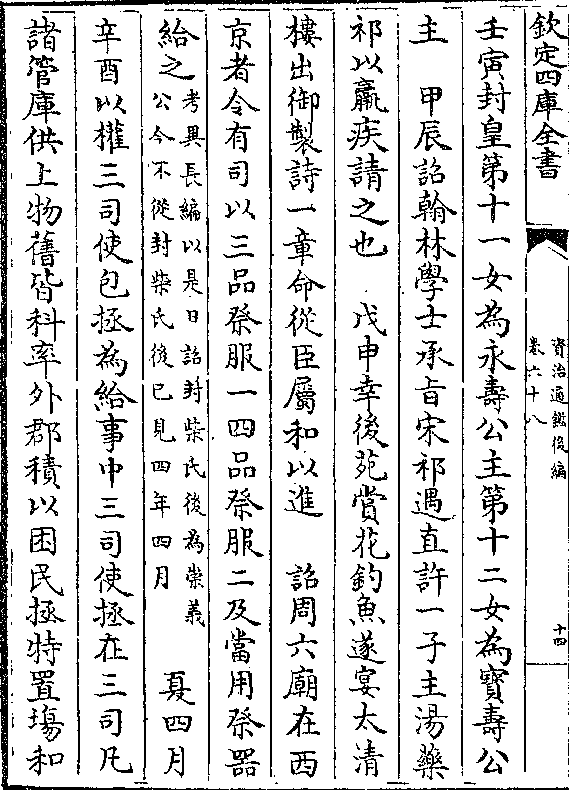 欽定四庫全書
資治通鑑後編
卷六十八
十四
壬寅封皇第十一女為永壽公主第十二女為寶壽公
主　甲辰詔翰林學士承旨宋祁遇直許一子主湯藥
祁以羸疾請之也　戊申幸後苑賞花釣魚遂宴太清
樓出御製詩一章命從臣屬和以進　詔周六廟在西
京者令有司以三品祭服一四品祭服二及當用祭器
給之
考異長編以是日詔封柴氏後為崇義
公今不從封柴氏後已見四年四月
夏四月
辛酉以權三司使包拯為給事中三司使拯在三司凡
諸管庫供上物舊皆科率外郡積以困民拯特置場和